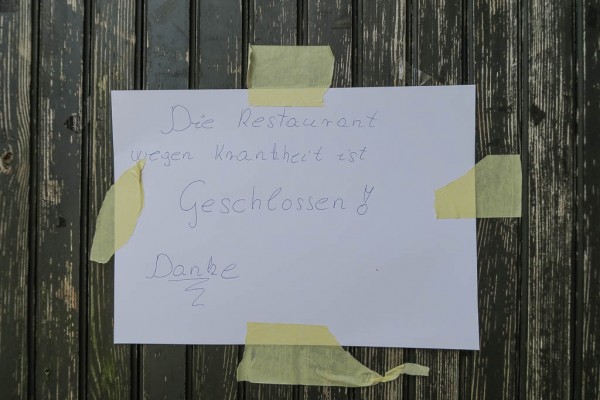 Die Restaurant
wegen Krankheit ist
Geschlossen!
Danke